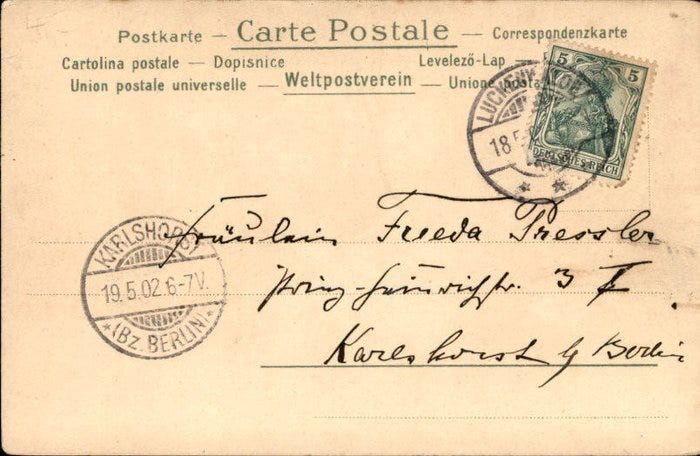 Postkarte — Carte Postale — Correspondenzkarte
Cartolina postale — Dopisnice Levelező-Lap —
Union postale universelle — Weltpostverein — Unione posta
5 5
DEUTSCHES REICH
18.5
KARLSHORST
19.5.02 6-7V.
* (Bz. BERLIN) *
Fräulein Frieda Pressler
Prinz-Heinrichstr. 3 I
Karlshorst b/ Berlin